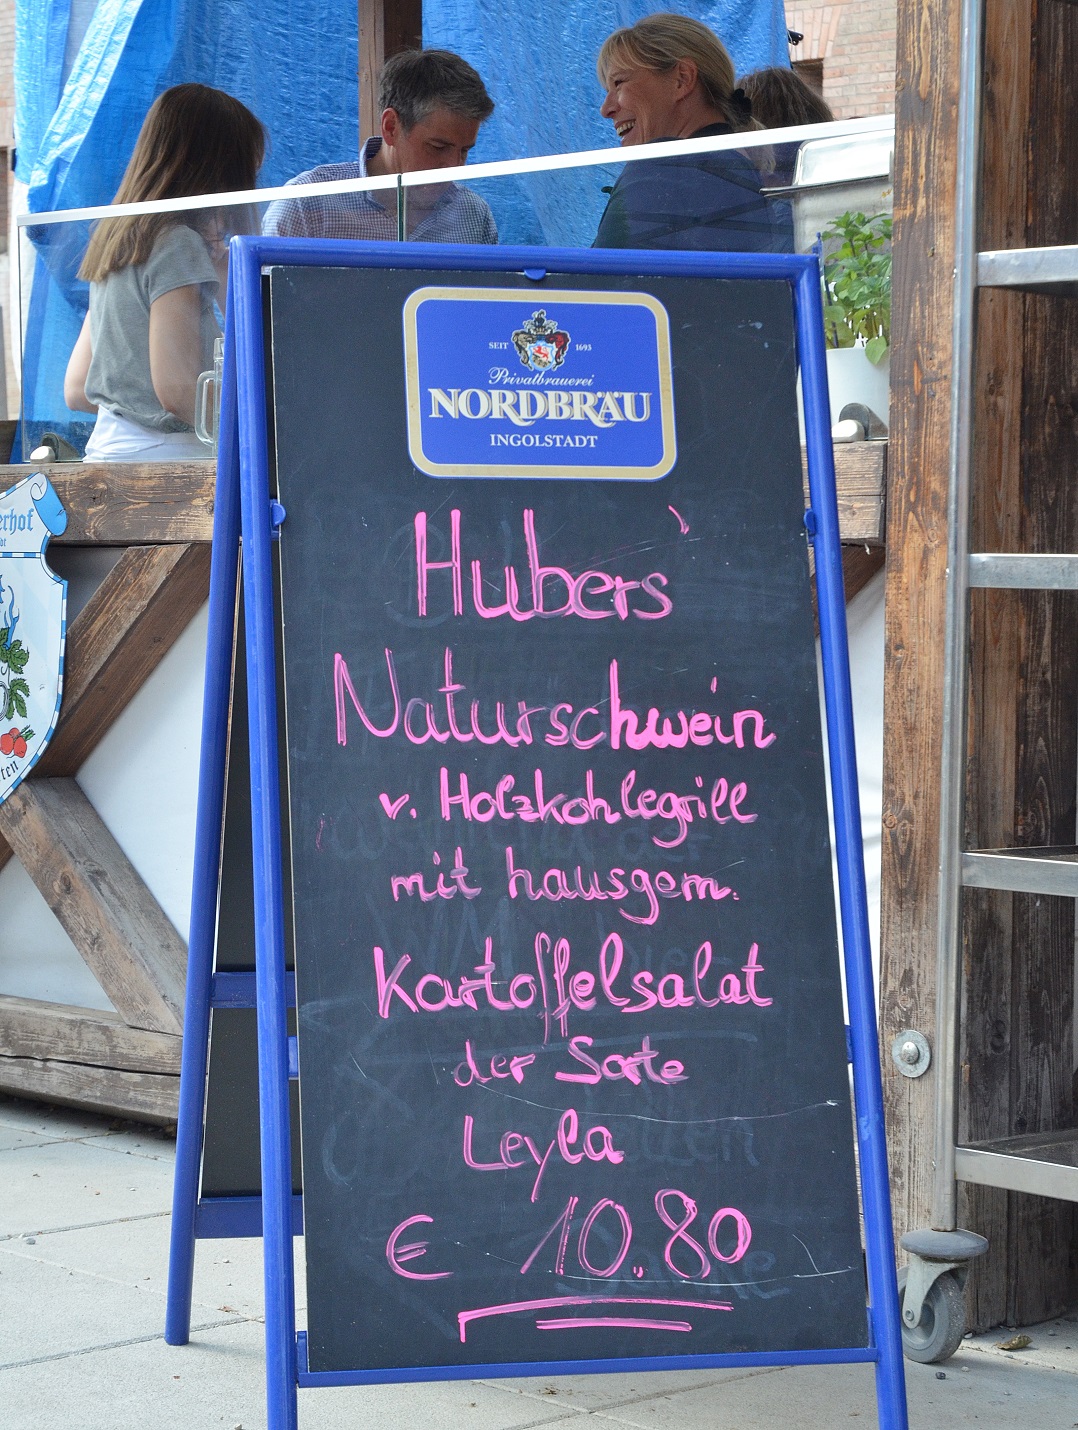 SEIT 1693
Privatbrauerei
NORDBRÄU
INGOLSTADT
Hubers
Naturschwein
v. Holzkohlegrill
mit hausgem.
Kartoffelsalat
der Sorte
Leyla
€ 10.80
erhof
ten